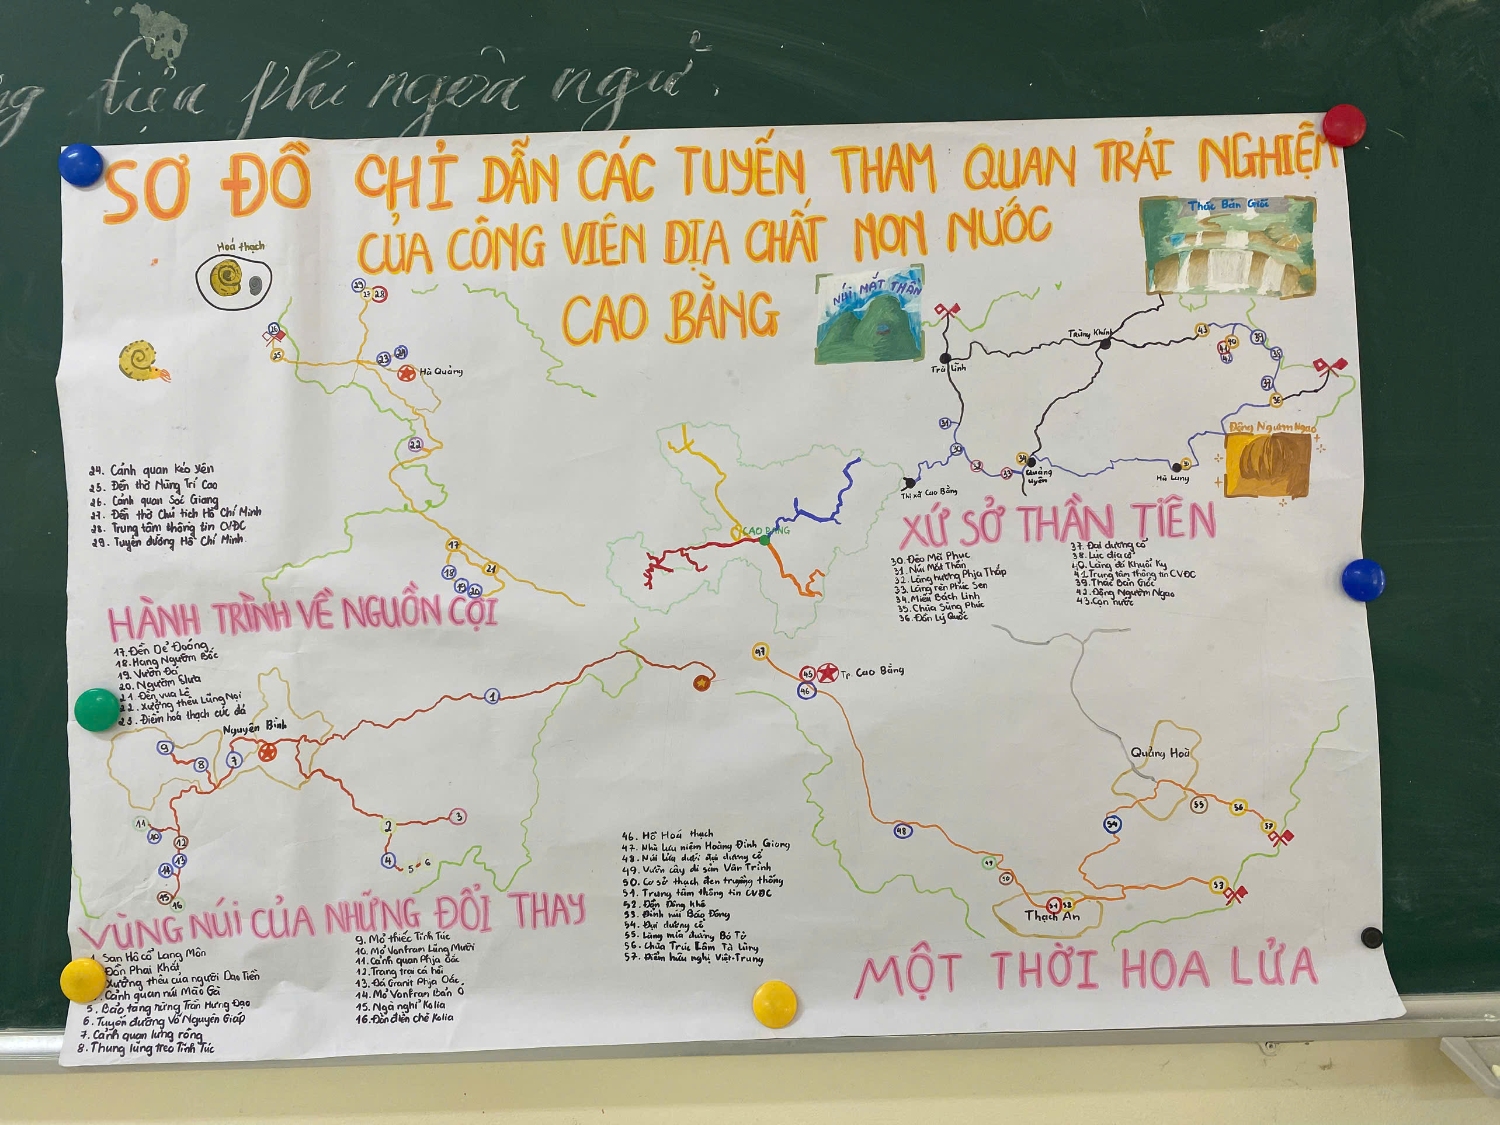 tiện phi ngôn ngữ.
SƠ ĐỒ CHỈ DẪN CÁC TUYẾN THAM QUAN TRẢI NGHIỆM
CỦA CÔNG VIÊN ĐỊA CHẤT NON NƯỚC
CAO BẰNG
Hoá thạch
NÚI MẮT THẦN
Thác Bản Giốc
Hà Quảng
Trà Lĩnh
Trùng Khánh
Động Ngườm Ngao
Thị xã Cao Bằng
Quảng Uyên
Hạ Lang
CAO BẰNG
24. Cảnh quan Kéo Yên
25. Đền thờ Nùng Trí Cao
26. Cảnh quan Sóc Giang
27. Đền thờ Chủ tịch Hồ Chí Minh
28. Trung tâm thông tin CVĐC
29. Tuyến đường Hồ Chí Minh
HÀNH TRÌNH VỀ NGUỒN CỘI
17. Đền Dẻ Đoóng
18. Hang Ngườm Bốc
19. Vườn Đá
20. Ngườm Slưa
21. Đền vua Lê
22. Xưởng thêu Lũng Nọi
23. Điểm hoá thạch cúc đá
XỨ SỞ THẦN TIÊN
30. Đèo Mã Phục
31. Núi Mắt Thần
32. Làng hương Phja Thắp
33. Làng rèn Phúc Sen
34. Miếu Bách Linh
35. Chùa Sùng Phúc
36. Đồn Lý Quốc
37. Đại dương cổ
38. Lục địa cổ
40. Làng đá Khuổi Ky
41. Trung tâm thông tin CVĐC
39. Thác Bản Giốc
42. Động Ngườm Ngao
43. Cọn nước
Nguyên Bình
VÙNG NÚI CỦA NHỮNG ĐỔI THAY
1. San Hô cổ Lang Môn
Đồn Phai Khắt
Xưởng thêu của người Dao Tiền
Cảnh quan núi Mão Gà
5. Bảo tàng rừng Trần Hưng Đạo
6. Tuyến đường Võ Nguyên Giáp
7. Cảnh quan lưng rồng
8. Thung lũng treo Tĩnh Túc
9. Mỏ thiếc Tĩnh Túc
10. Mỏ Vonfram Lũng Mười
11. Cảnh quan Phja Oắc
12. Trang trại cá hồi
13. Đá Granit Phja Oắc
14. Mỏ Vonfram Bản Ổ
15. Ngã nghỉ Kolia
16. Đồn điền chè Kolia
Tp Cao Bằng
Quảng Hoà
Thạch An
46. Hồ Hoá thạch
47. Nhà lưu niệm Hoàng Đình Giong
48. Núi lửa dưới đại dương cổ
49. Vườn cây di sản Vân Trình
50. Cơ sở thạch đen truyền thống
51. Trung tâm thông tin CVĐC
52. Đồn Đông Khê
53. Đỉnh núi Báo Đông
54. Đại dương cổ
55. Làng mía đường Bó Tờ
56. Chùa Trúc Lâm Tà Lùng
57. Điểm hữu nghị Việt-Trung
MỘT THỜI HOA LỬA